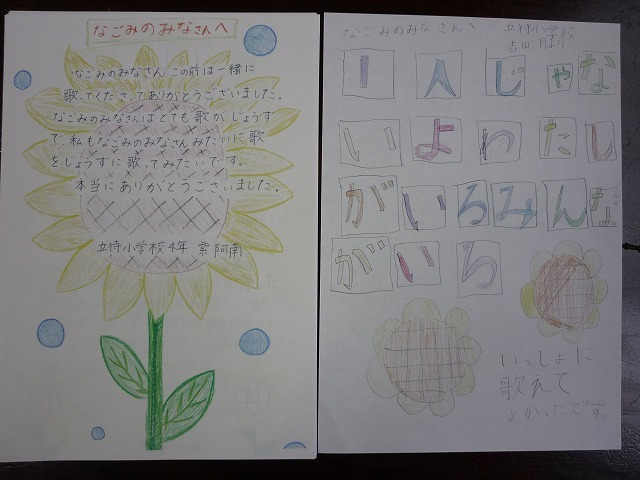 なごみのみなさんへ
なごみのみなさんこの前は一緒に
歌ってくださってありがとうございました。
なごみのみなさんはとても歌がじょうず
で、私もなごみのみなさんみたいに歌
をじょうずに歌ってみたいです。
本当にありがとうございました。
立待小学校4年 紫阿南
なごみのみなさんへ
立待小学校
吉田
1人じゃな
いよわたし
がいろみんな
がいろ
いっしょに
歌れて
よかったです。